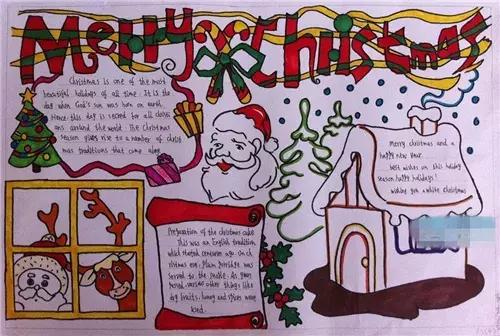 Merry Christmas
Christmas is one of the most
beautiful holidays of all time. It is the
day when God's son was born on earth.
Hence this day is sacred for all
around the world. The Christmas
season gives rise to a number of christ
mas traditions that come along
Merry christmas and a
happy new year
best wishes on this holiday
season happy holidays!
wishing you a white christmas
Preparation of the christmas cake
This was an English tradition,
which started centuries ago. On ch
ristmas eve, Plum Porridge was
served to the people. As years
passed, various other things like
dry fruits, honey and spices were